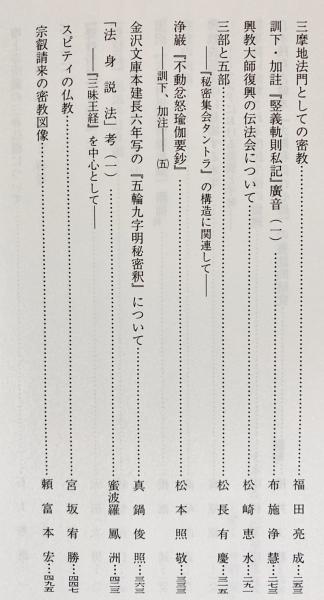 三摩地法門としての密教……福田亮成…二五三
訓下・加註『竪義軌則私記』廣音(一)……布施浄慧…二七三
興教大師復興の伝法会について……松崎恵水…二九一
三部と五部……松長有慶…三一五
――『秘密集会タントラ』の構造に関連して――
浄厳『不動忿怒瑜伽要鈔』……松本照敬…三三三
――訓下、加注――(五)
金沢文庫本建長六年写の『五輪九字明秘密釈』について……真鍋俊照…三六三
「法身説法」考(一)……蜜波羅鳳洲…四二三
――『三昧王経』を中心として――
スピティの仏教……宮坂宥勝…四四七
宗叡請来の密教図像……頼富本宏…四九五